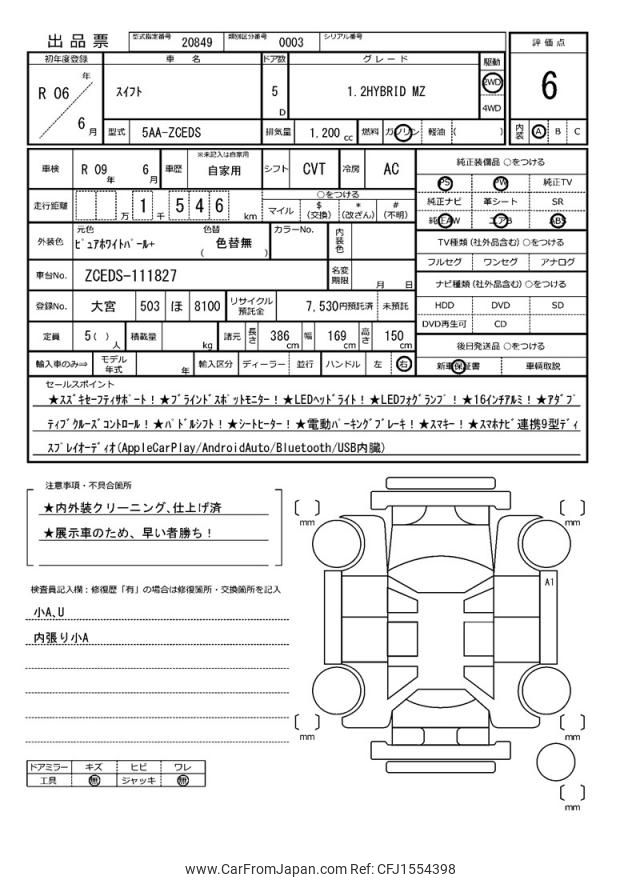 出品票 型式指定番号 20849 類別区分番号 0003 シリアル番号
評価点
6
内装 A B C
初年度登録 車 名 ドア数 グレード 駆動
R 06 年 6 月
スイフト 5 D 1.2HYBRID MZ 2WD 4WD
型式 5AA-ZCEDS 排気量 1.200 cc 燃料 ガソリン 軽油 ( )
車検 R 09 年 6 月 車歴 ※未記入は自家用 自家用 シフト CVT 冷房 AC
走行距離 万 1 千 5 4 6 km
○をつける
マイル $(交換) *(改ざん) #(不明)
外装色 元色 ピュアホワイトパール+ 色替 ( 色替無 ) カラーNo. 内装色
車台No. ZCEDS-111827 名変期限 月 日
登録No. 大宮 503 ほ 8100 リサイクル預託金 7,530円預託済 未預託
定員 5( ) 人 積載量 kg 諸元 長さ 386 cm 幅 169 cm 高さ 150 cm
輸入車のみ⇨ モデル年式 年 輸入区分 ディーラー 並行 ハンドル 左 右
純正装備品 ○をつける
PS PW 純正TV
純正ナビ 革シート SR
純正AW エアB ABS
TV種類 (社外品含む) ○をつける
フルセグ ワンセグ アナログ
ナビ種類 (社外品含む) ○をつける
HDD DVD SD
DVD再生可 CD
後日発送品 ○をつける
新車保証書 車輌取説
セールスポイント
★スズキセーフティサポート！★ブラインドスポットモニター！★LEDヘッドライト！★LEDフォグランプ！★16インチアルミ！★アダプ
ティブクルーズコントロール！★パドルシフト！★シートヒーター！★電動パーキングブレーキ！★スマキー！★スマホナビ連携9型ディ
スプレイオーディオ(AppleCarPlay/AndroidAuto/Bluetooth/USB内臓)
注意事項・不具合箇所
★内外装クリーニング､仕上げ済
★展示車のため、早い者勝ち！
検査員記入欄：修復歴「有」の場合は修復箇所・交換箇所を記入
小A､U
内張り小A
ドアミラー キズ ヒビ ワレ
工具 無 ジャッキ 無
mm
mm
A1
mm
mm
mm
www.CarFromJapan.com Ref: CFJ1554398